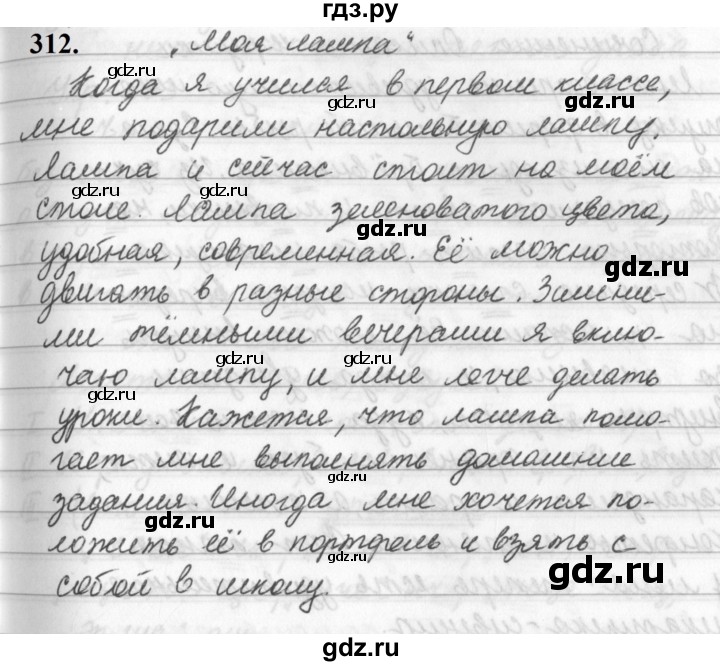 гдз.ру
312. „Моя лампа"
Когда я учился в первом классе,
мне подарили настольную лампу.
Лампа и сейчас стоит на моём
столе. Лампа зеленоватого цвета,
удобная, современная. Её можно
двигать в разные стороны. Зимни-
ми тёмными вечерами я вклю-
чаю лампу, и мне легче делать
уроки. Кажется, что лампа помо-
гает мне выполнять домашние
задания. Иногда мне хочется по-
ложить её в портфель и взять с
собой в школу.
gdz.ru
gdz.ru
gdz.ru
gdz.ru
gdz.ru
gdz.ru
gdz.ru
gdz.ru
gdz.ru
gdz.ru
gdz.ru
gdz.ru
gdz.ru
gdz.ru